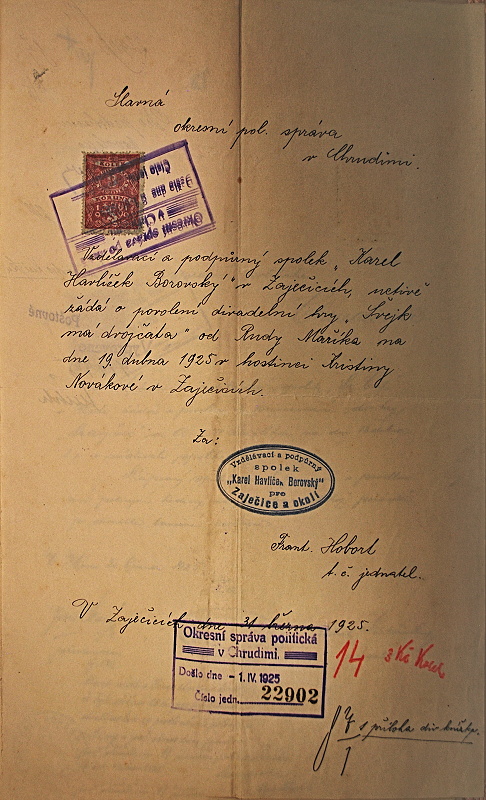 Slavná
okresní pol. správa
v Chrudimi.
KOLEK
KORUNA
Okresní správa po
v Ch
Došlo dne
Číslo je
Vzdělávací a podpůrný spolek „Karel
Havlíček Borovský" v Zaječicích, uctivě
žádá o povolení divadelní hry „Švejk
má dvojčata" od Rudy Maříka na
dne 19. dubna 1925 v hostinci Kristiny
Novákové v Zaječicích.
Poštovně
Za:
Vzdělávací a podpůrný
spolek
„Karel Havlíček Borovský"
pro
Zaječice a okolí
Frant. Hobort
t. č. jednatel.
V Zaječicích dne 31. března 1925.
Okresní správa politická
v Chrudimi.
Došlo dne - 1. IV. 1925
Číslo jedn. 22902
14 3 Kč
s příloha div.